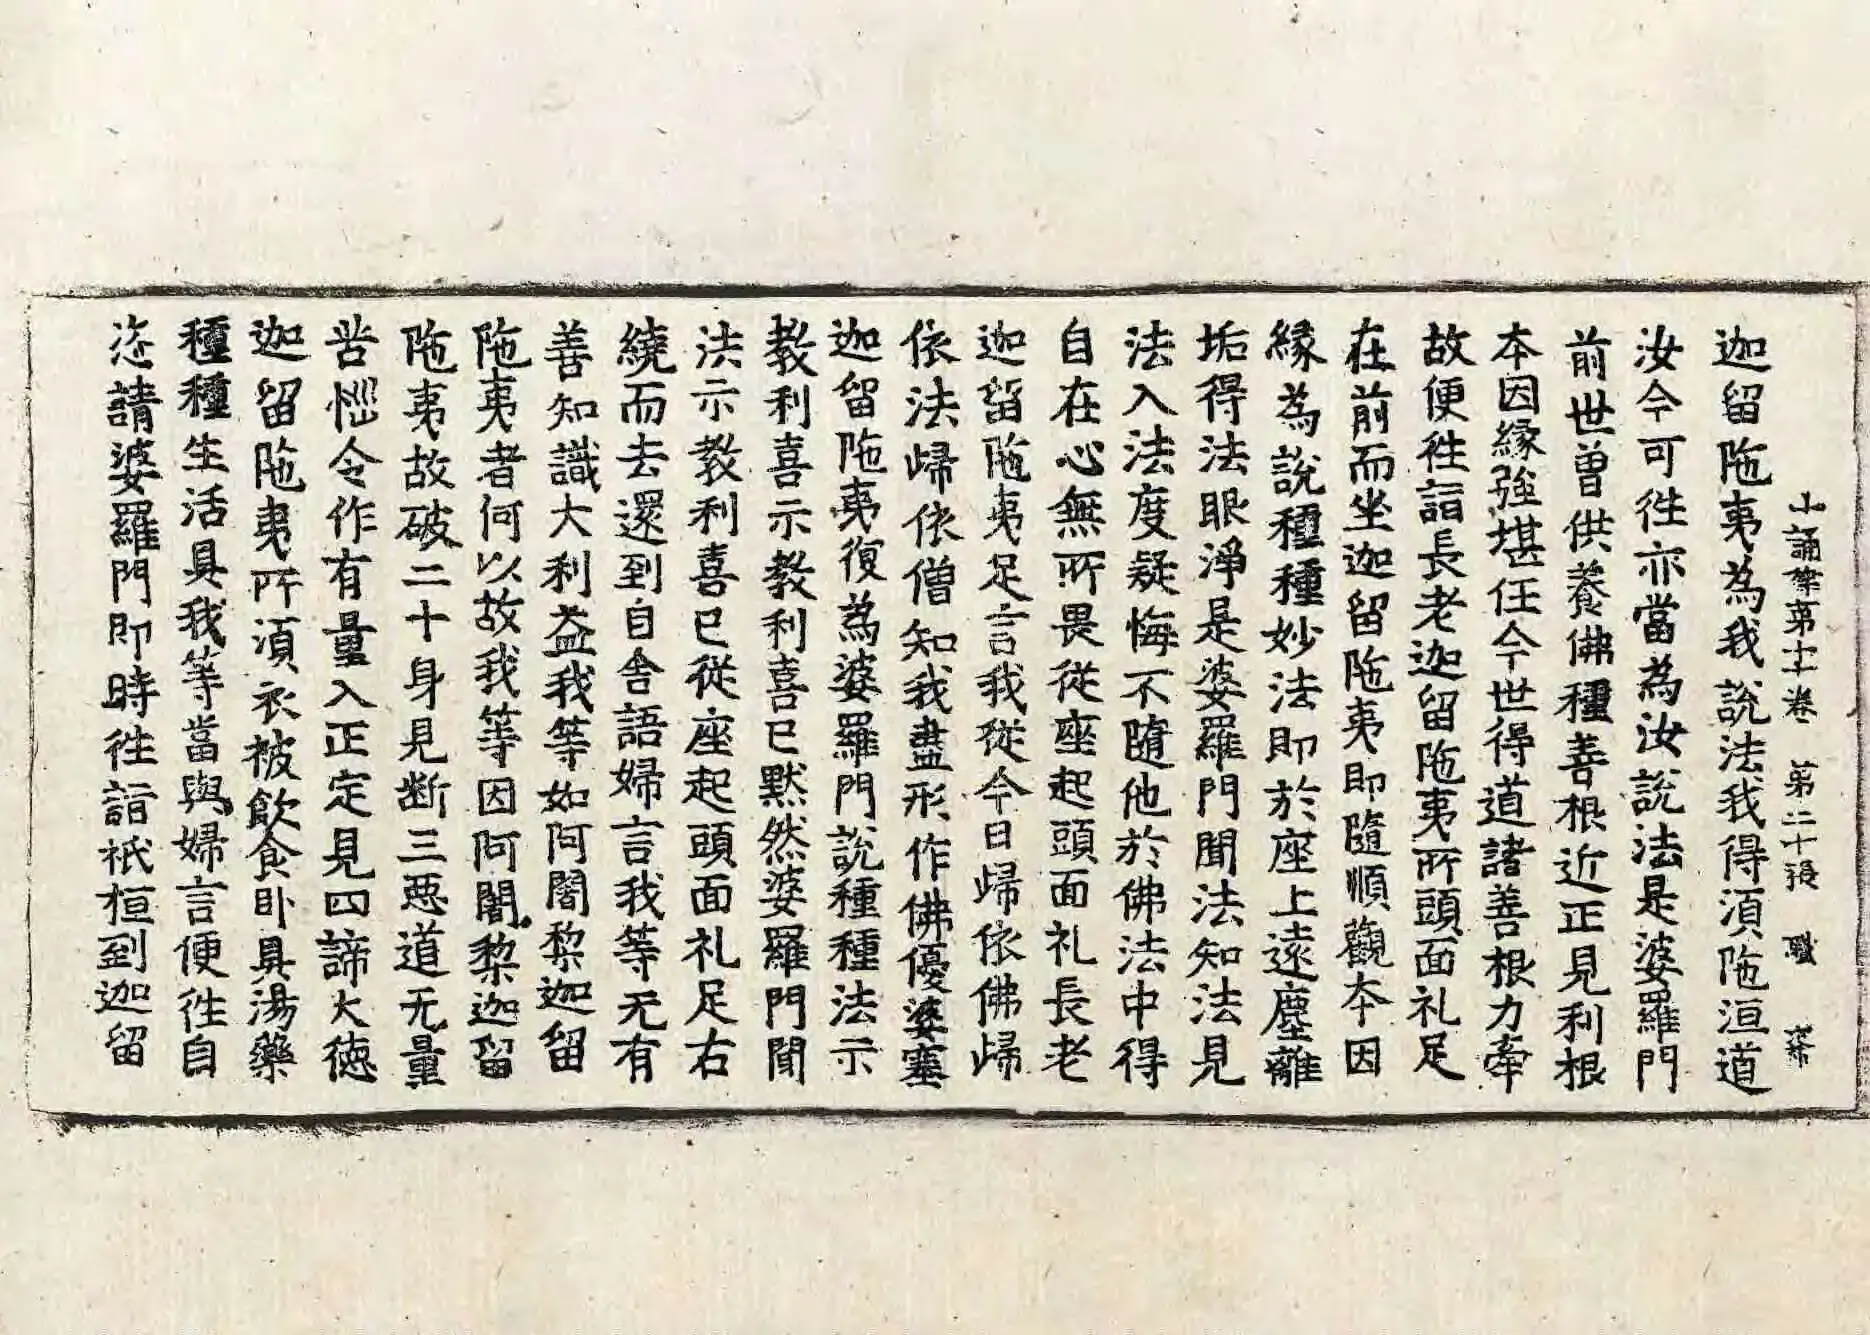 十誦律第十七卷　第二十張　職　荣
迦留陁夷為我說法我得湏陁洹道
汝今可徃亦當為汝說法是婆羅門
前世曽供養佛種善根近正見利根
本因縁強堪任今世得道諸善根力牽
故便徃詣長老迦留陁夷所頭面礼足
在前而坐迦留陁夷即隨順觀本因
縁為說種種妙法即於座上遠塵離
垢得法眼淨是婆羅門聞法知法見
法入法度疑悔不隨他於佛法中得
自在心無所畏従座起頭面礼長老
迦留陁夷足言我従今日歸依佛歸
依法歸依僧知我盡形作佛優婆塞
迦留陁夷復為婆羅門說種種法示
教利喜示教利喜已默然婆羅門聞
法示教利喜已従座起頭面礼足右
繞而去還到自舍語婦言我等无有
善知識大利益我等如阿闍梨迦留
陁夷者何以故我等因阿闍梨迦留
陁夷故破二十身見断三惡道无量
苦惱令作有量入正定見四諦大徳
迦留陁夷所湏衣被飲食卧具湯藥
種種生活具我等當與婦言便徃自
恣請婆羅門即時徃詣祇桓到迦留